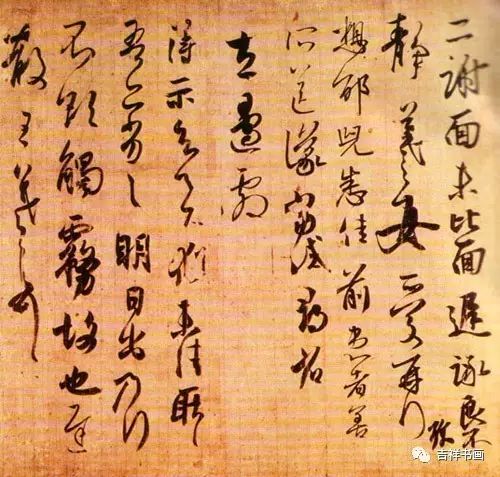 二謝面未比面遲詠良不
靜羲之女愛再拜
想邵兒悉佳前患者善
所送議當試尋省
左邊劇
得示知足下猶未佳耿〻
吾亦劣〻明日出乃行
不欲觸霧故也遲
散王羲之頓首
吉祥书画